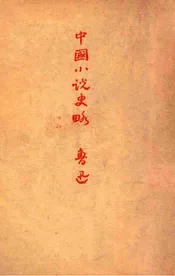 中國小说史略
魯迅